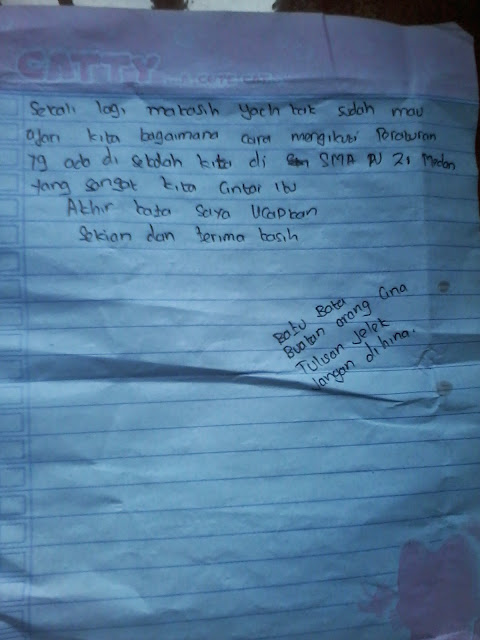 CATTY
Sekali lagi makasih yach kak sudah mau
ajari kita bagaimana cara mengikuti Peraturan
yg ada di sekolah kita di SMA N 21 Medan
yang sangat kita cintai itu
Akhir kata saya Ucapkan
Sekian dan terima kasih
Batu Bata
Buatan orang Cina
Tulisan jelek
Jangan di hina.